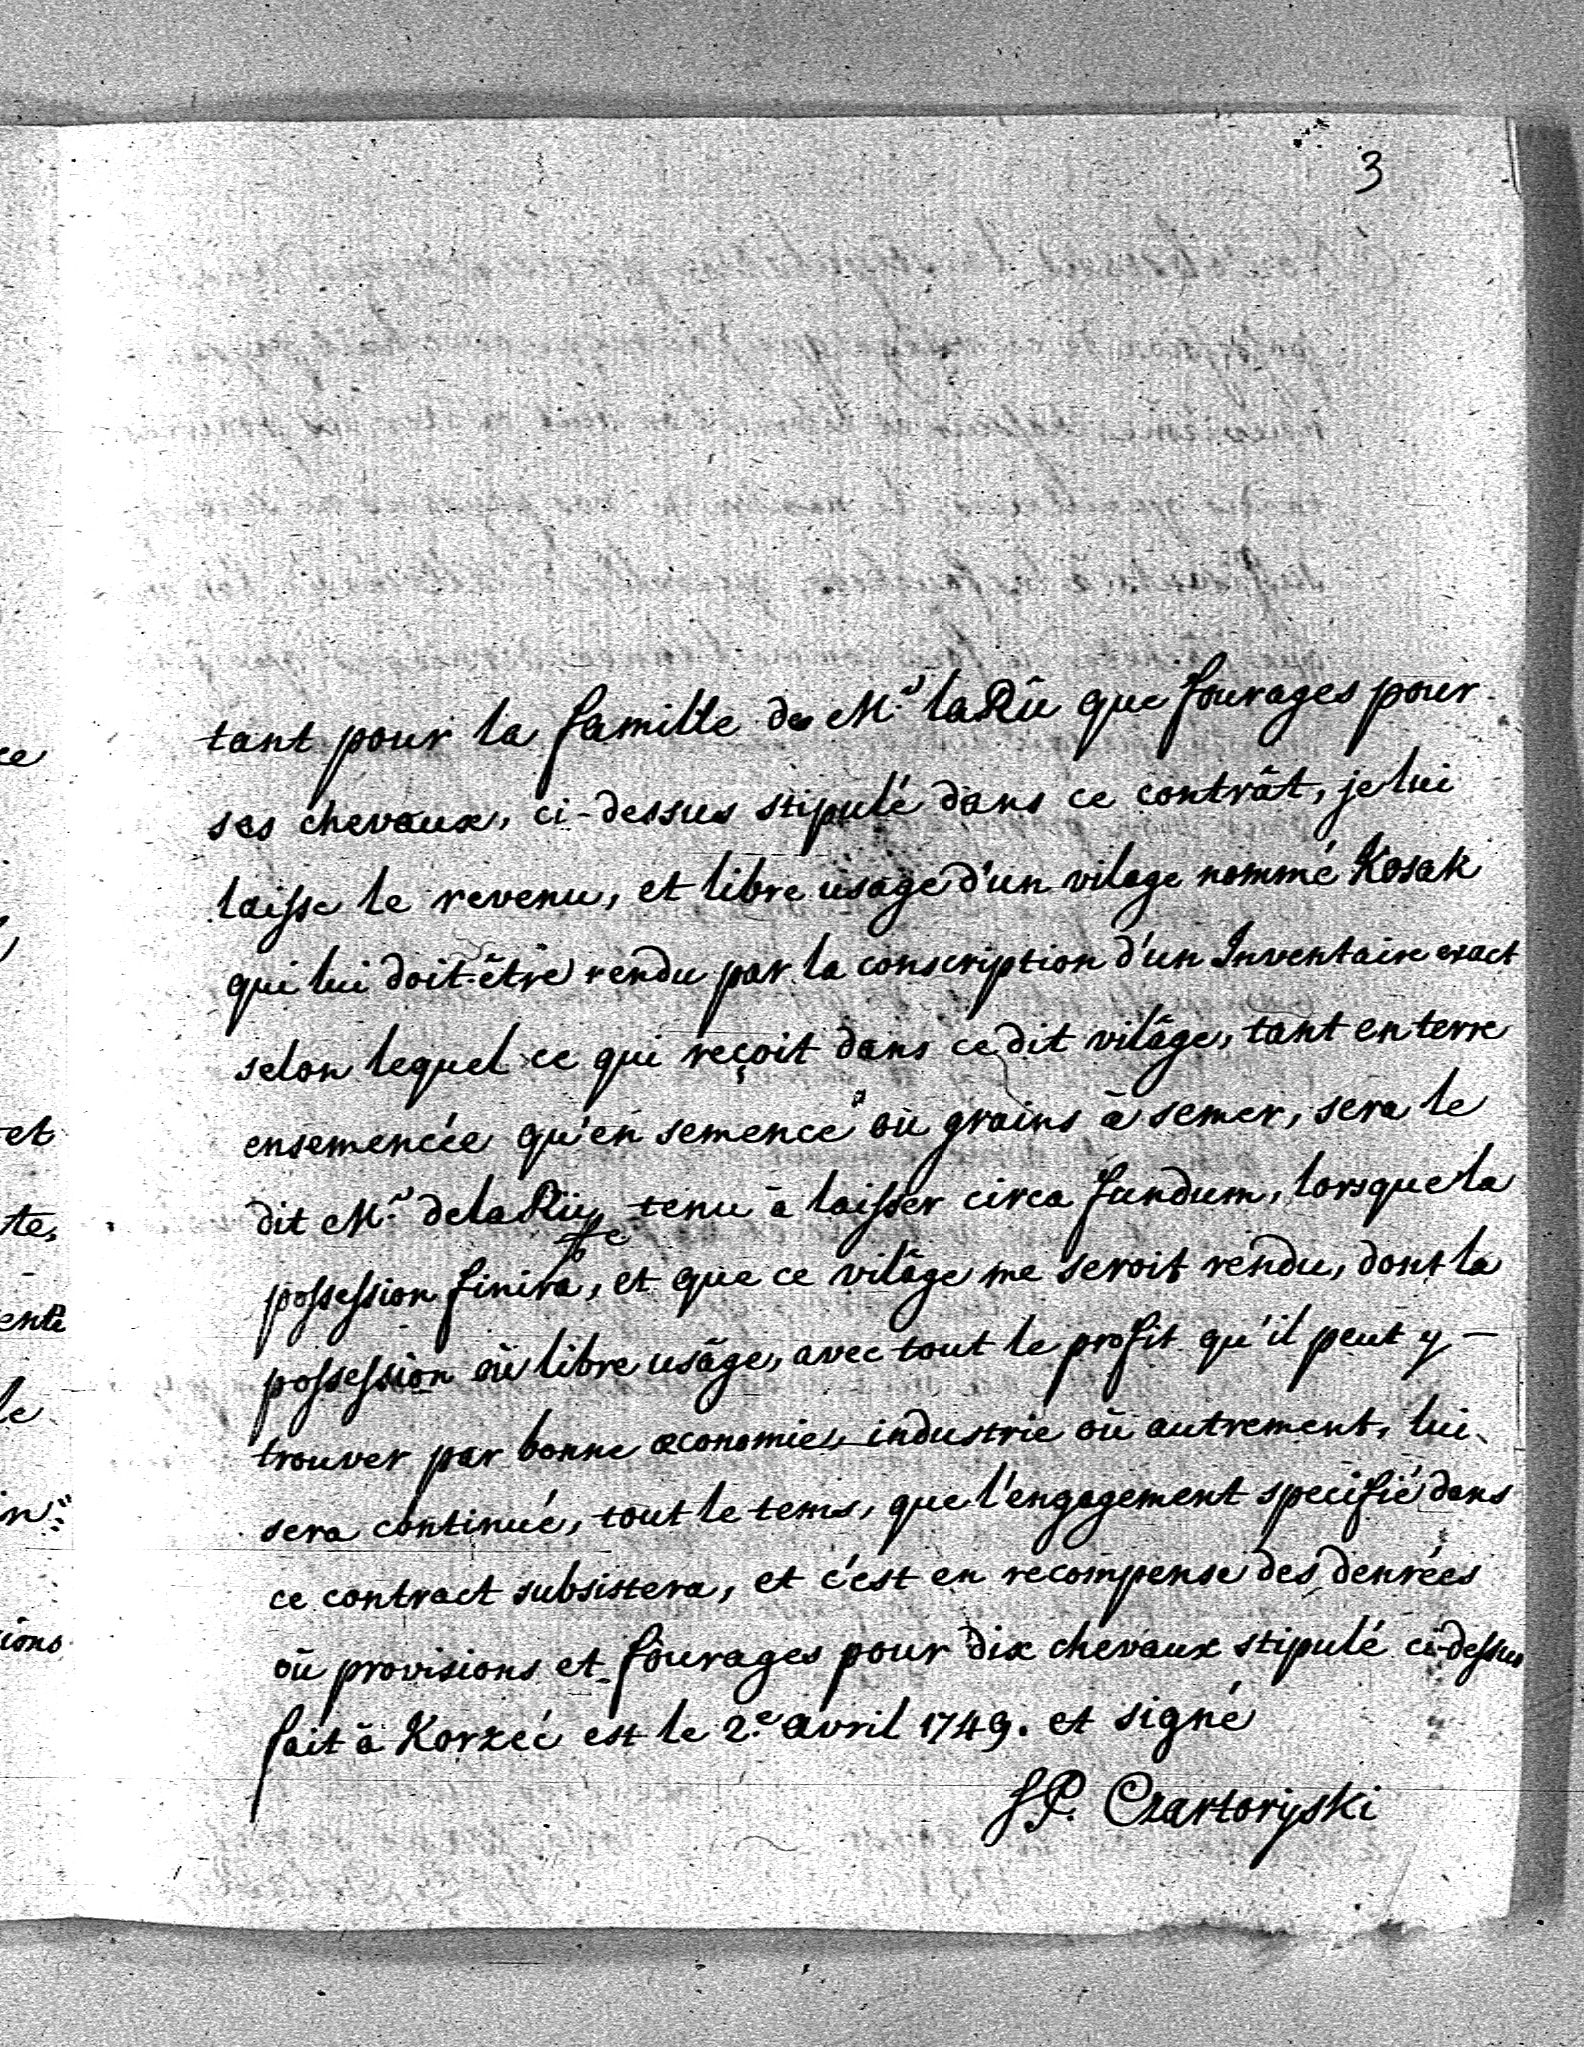 3
tant pour la famille de Mr. laRüe que fourages pour
ses chevaux, ci-dessus stipulé dans ce contrât, je lui
laisse le revenu, et libre usage d'un vilage nommé Kosak
qui lui doit-être rendu par la conscription d'un Inventaire exact
selon lequel ce qui reçoit dans ce dit vilâge, tant en terre
ensemencée qu'en semence où grains à semer, sera le
dit Mr. delaRüe tenu à laisser circa fundum, lorsque la
possession finira, et que ce vilâge me seroit rendu, dont la
possession où libre usâge, avec tout le profit qu'il peut y
trouver par bonne œconomie, industrie où autrement, lui
sera continué, tout le tems, que l'engagement specifié dans
ce contract subsistera, et c'est en recompense des denrées
où provisions et fourages pour dix chevaux stipulé ci-dessus
fait à Korzéc est le 2.e avril 1749. et signé
Czartoryski
ce
et
te,
ente
le
ions